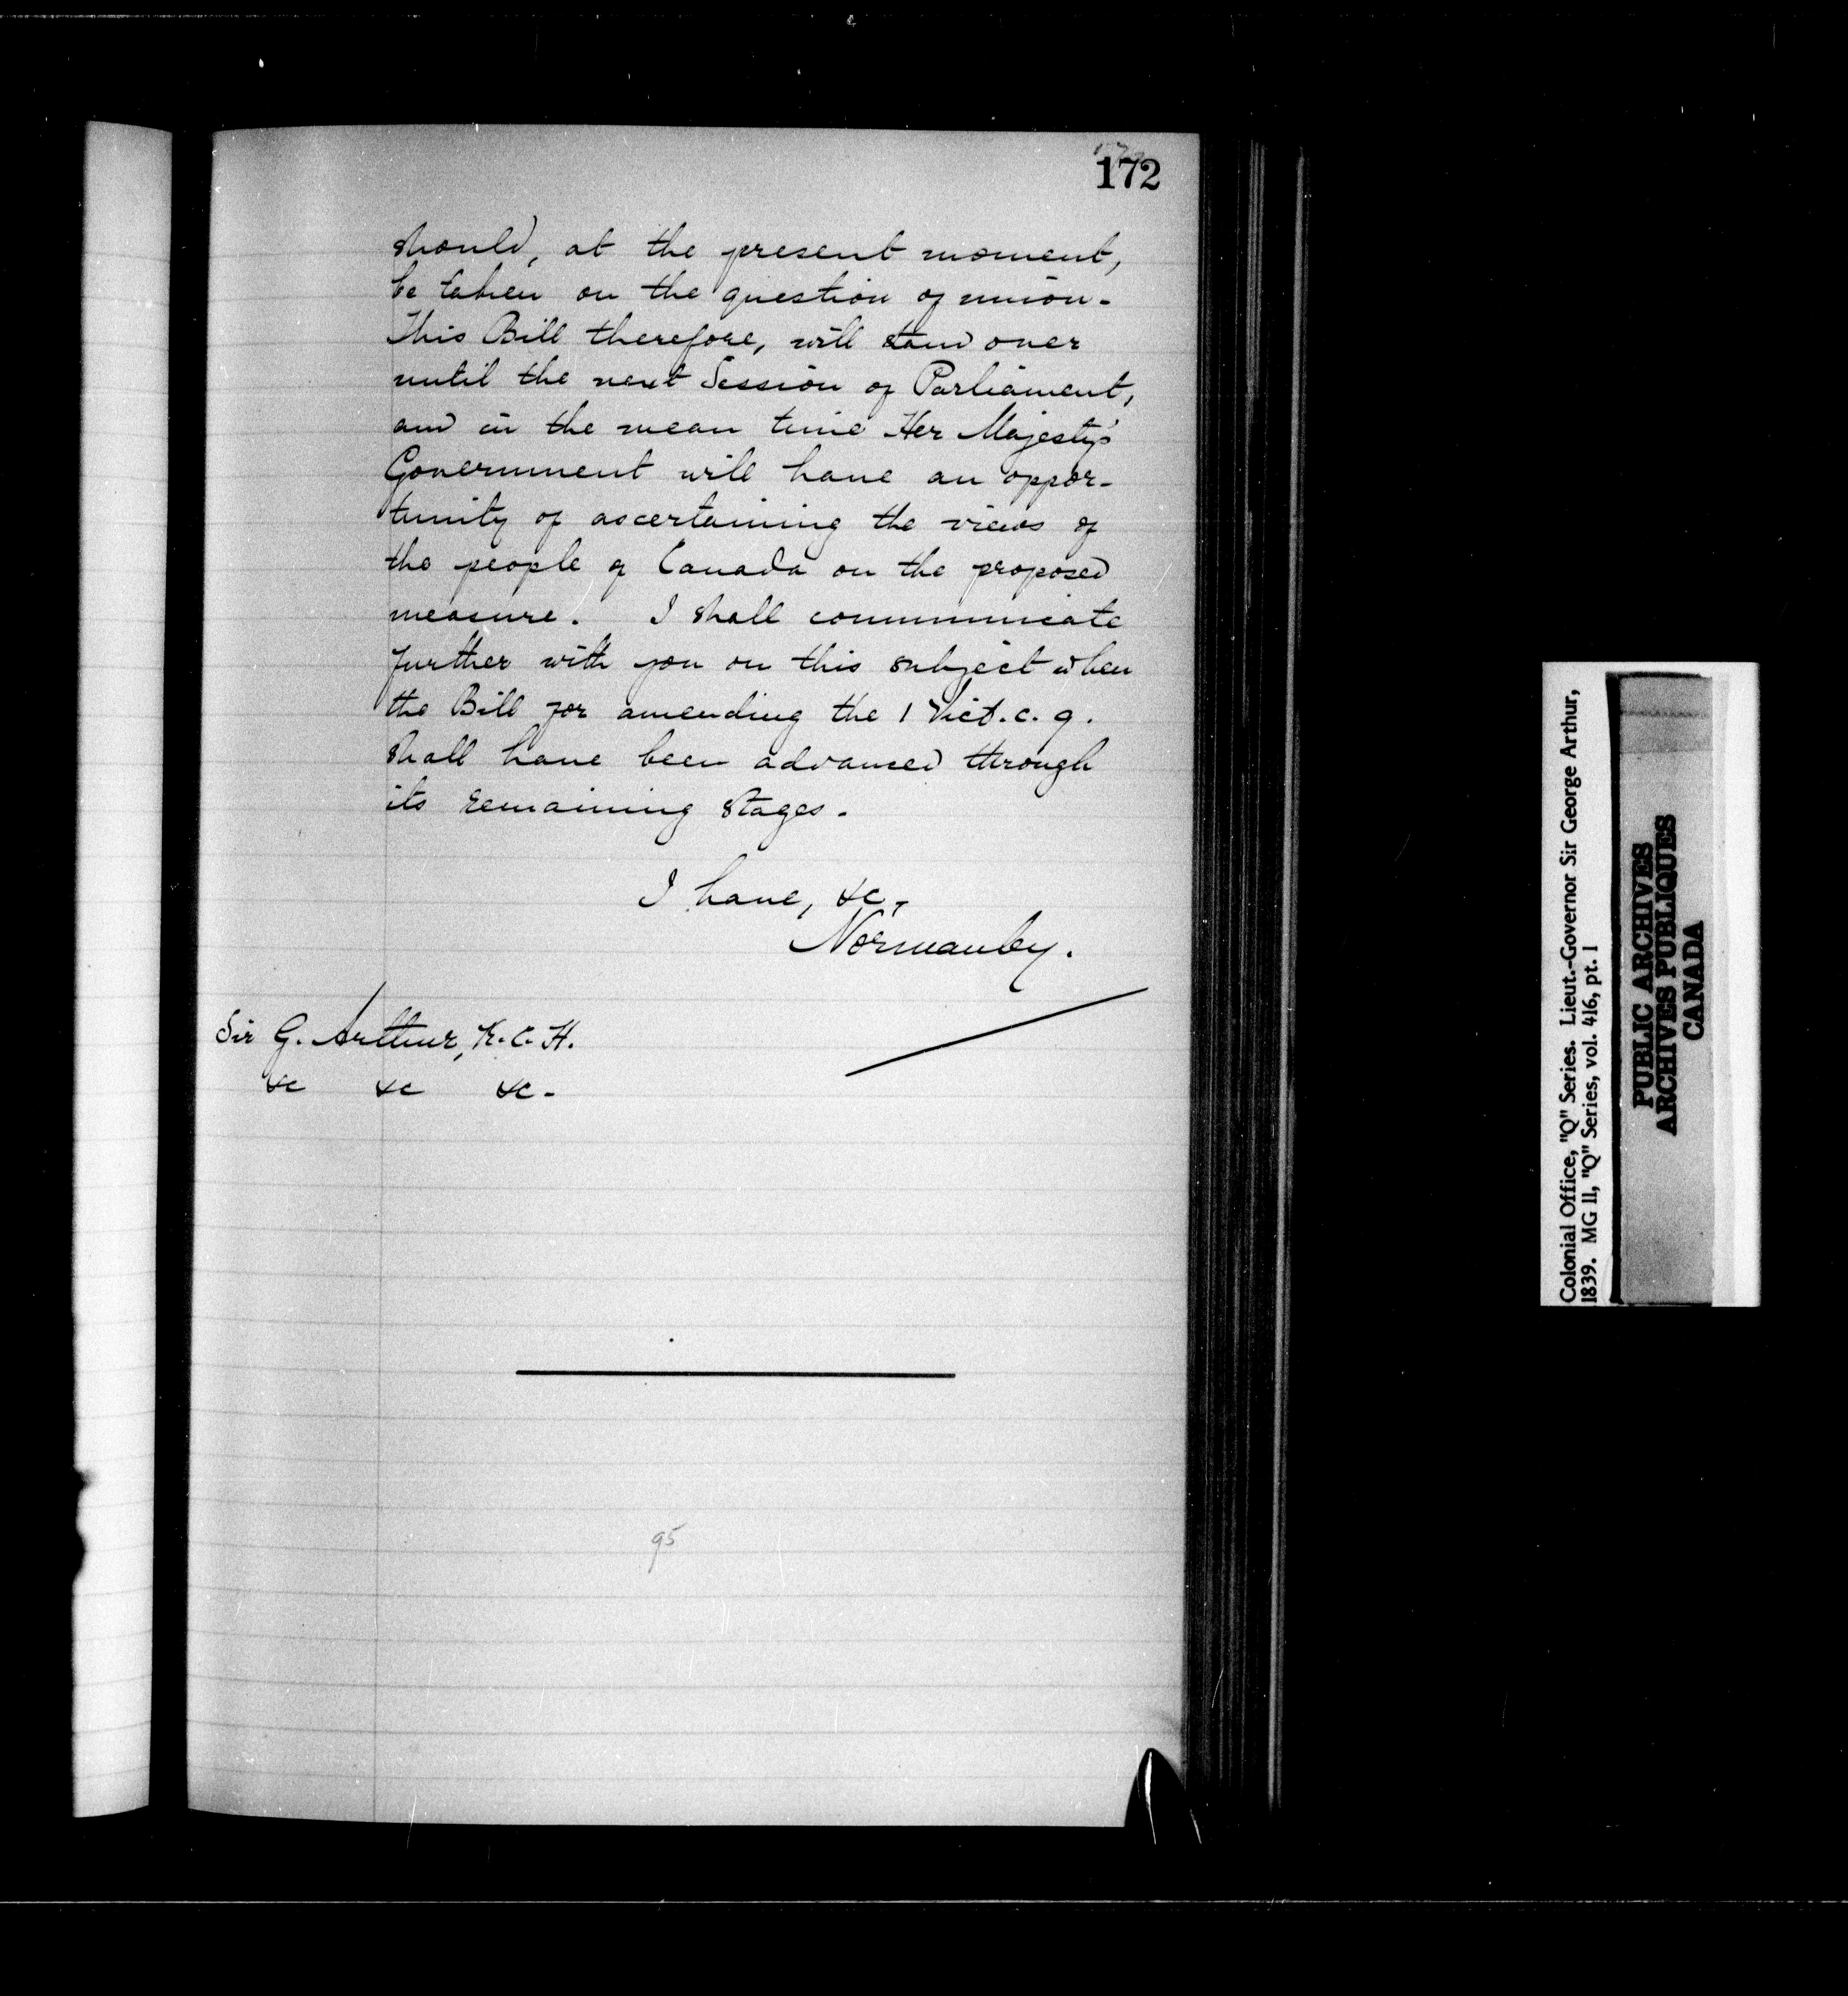 172
should, at the present moment,
be taken on the question of union.
This Bill therefore, will stand over
until the next Session of Parliament,
and in the mean time Her Majesty's
Government will have an oppor-
tunity of ascertaining the views of
the people of Canada on the proposed
measure. I shall communicate
further with you on this subject when
the Bill for amending the 1 Vict. c. 9.
shall have been advanced through
its remaining stages.
I have, &c,
Normanby.
Sir G. Arthur, K.C.H.
&c &c &c.
95
Colonial Office, "Q" Series. Lieut.-Governor Sir George Arthur,
1839. MG 11, "Q" Series, vol. 416, pt. 1
PUBLIC ARCHIVES
ARCHIVES PUBLIQUES
CANADA